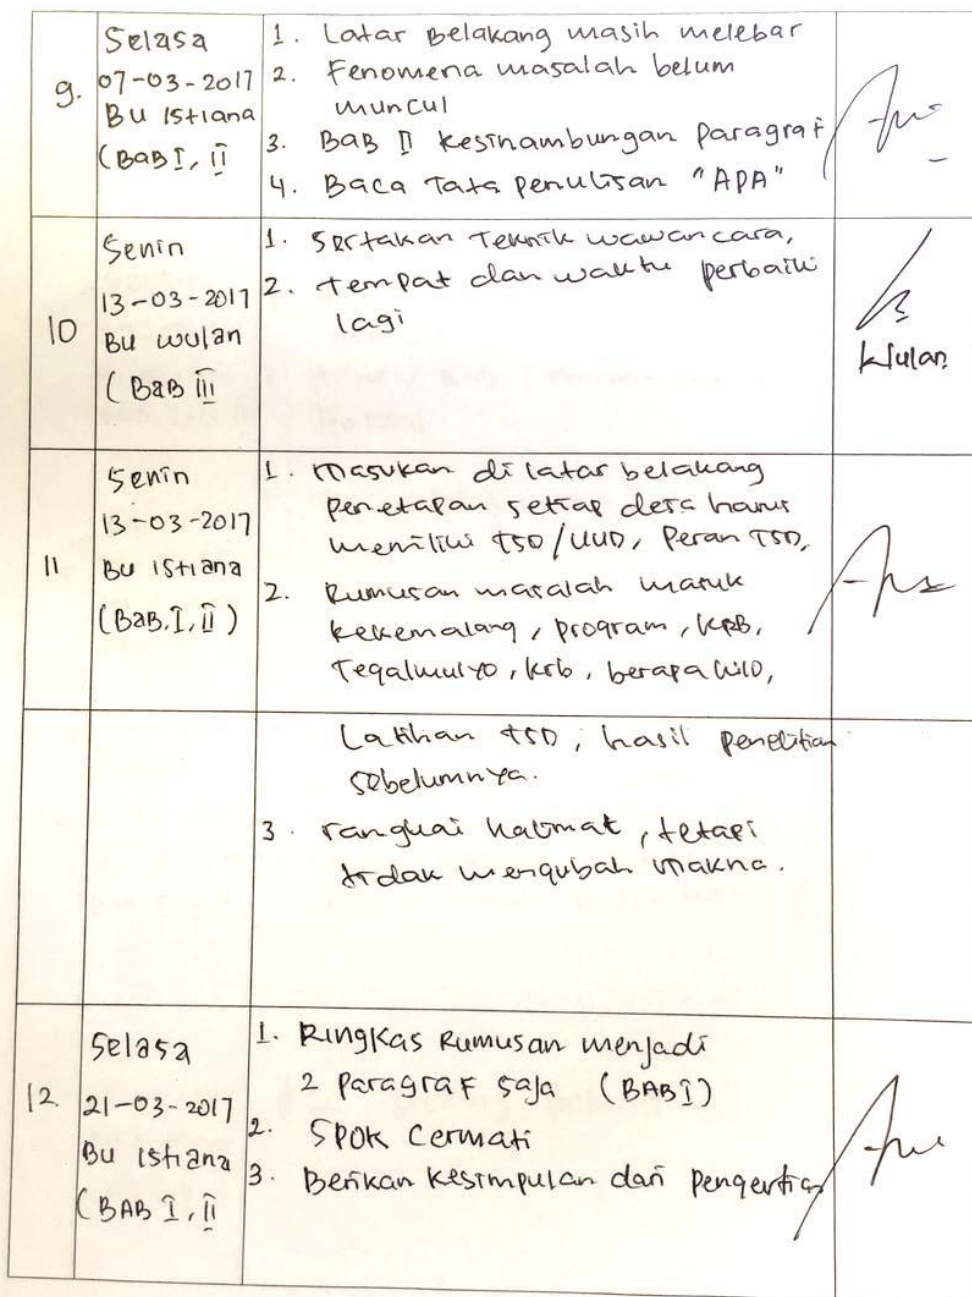 9.
Selasa
07-03-2017
Bu Istiana
(BaB I, II
1. Latar Belakang masih melebar
2. Fenomena masalah belum
muncul
3. BaB II kesinambungan Paragraf
4. Baca Tata penulisan "APA"
10
Senin
13-03-2017
Bu wulan
(BaB III
1. Sertakan Teknik wawancara,
2. tempat dan waktu perbaiki
lagi
Wulan
11
Senin
13-03-2017
Bu Istiana
(BaB.I, II)
1. Masukan di latar belakang
penetapan setiap desa harus
memiliki TSD/UUD, Peran TSD,
2. Rumusan masalah masuk
kekemalang, program, KRB,
Tegalmulyo, krb, berapa
Latihan TSD, hasil penelitian
sebelumnya.
3. rangkai kalimat, tetapi
tidak mengubah makna.
12.
Selasa
21-03-2017
Bu Istiana
(BAB I, II
1. Ringkas Rumusan menjadi
2 Paragraf saja (BAB I)
2. SPOK Cermati
3. Berikan Kesimpulan dari Pengertian